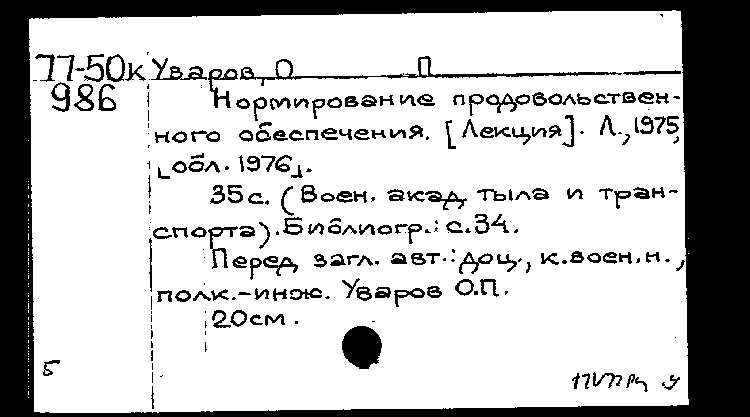 77-50к Уваров, О П
986 Нормирование продовольствен-
ного обеспечения. [Лекция]. Л., 1975,
обл. 1976.
35с. (Воен. акад. тыла и тран-
спорта). Библиогр.: с.34.
Перед загл. авт.: доц., к.воен.н.,
полк.-инж. Уваров О.П.
20см.
Б